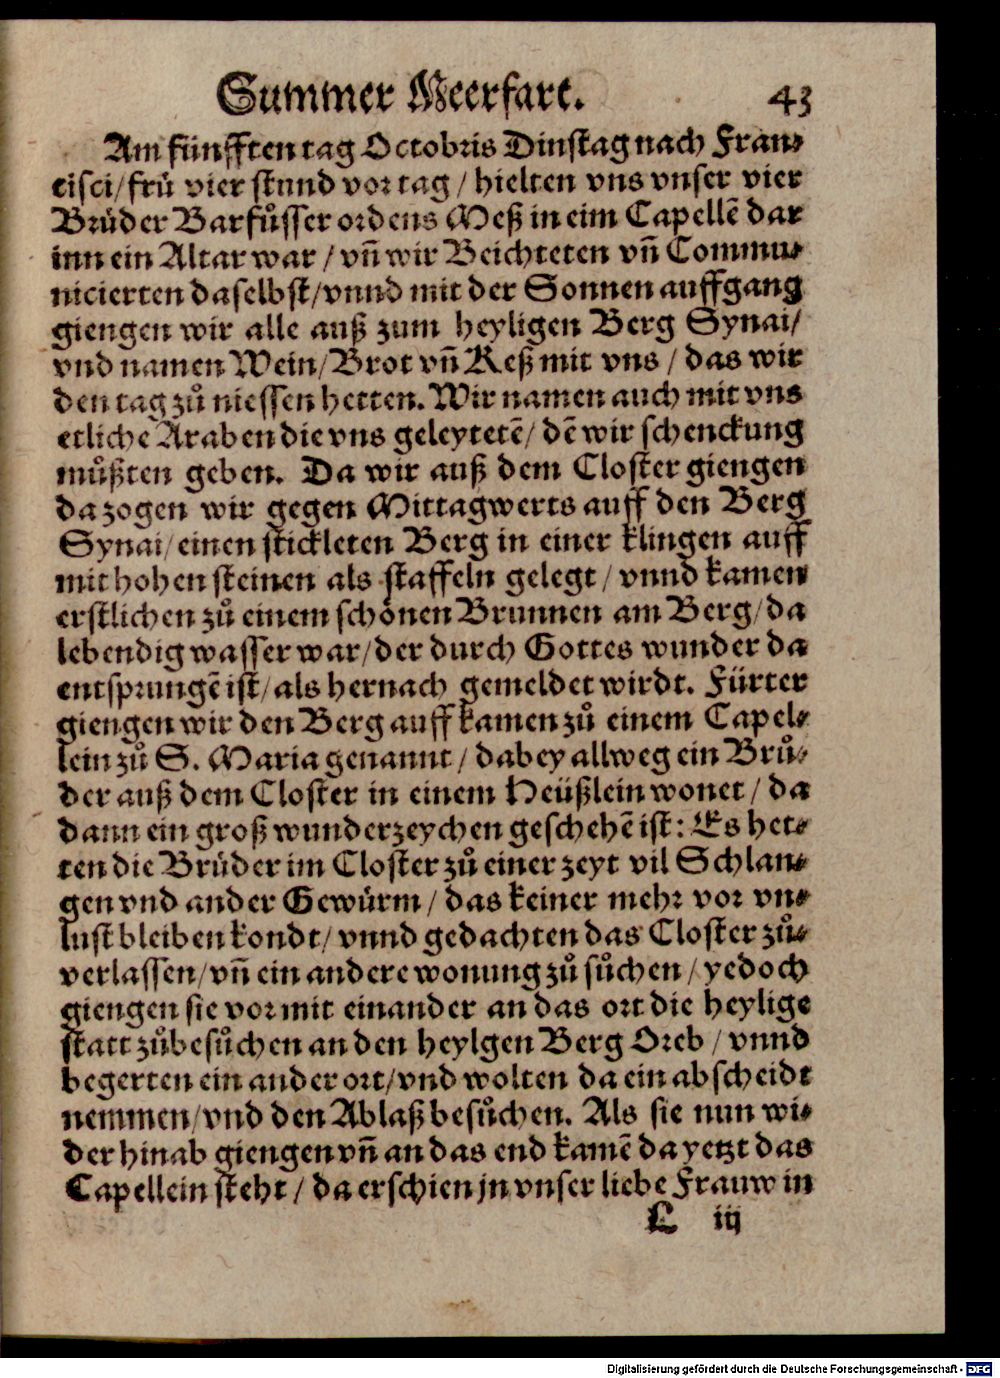 Summer Meerfart. 43
Am fünfften tag Octobris Dinstag nach Fran⸗
cisci/ frü vier stund vor tag / hielten vns vnser vier
Brüder Barfůsser ordens Meß in eim Capellē dar
inn ein Altar war / vn̄ wir Beichteten vn̄ Commu⸗
nicierten daselbst/ vnnd mit der Sonnen auffgang
giengen wir alle auß zum heyligen Berg Synai/
vnd namen Wein/ Brot vn̄ Keß mit vns / das wir
den tag zů niessen hetten. Wir namen auch mit vns
etliche Araben die vns geleytetē/ dē wir schenckung
můßten geben. Da wir auß dem Closter giengen
da zogen wir gegen Mittagwerts auff den Berg
Synai/ einen stickleten Berg in einer klingen auff
mit hohen steinen als staffeln gelegt / vnnd kamen
erstlichen zů einem schönen Brunnen am Berg/ da
lebendig wasser war/ der durch Gottes wunder da
entsprungē ist/ als hernach gemeldet wirdt. Fürter
giengen wir den Berg auff kamen zů einem Capel⸗
lein zů S. Maria genannt / dabey allweg ein Brů⸗
der auß dem Closter in einem Heüßlein wonet / da
dann ein groß wunderzeychen geschehē ist: Es het⸗
ten die Brüder im Closter zů einer zeyt vil Schlan⸗
gen vnd ander Gewürm / das keiner mehr vor vn⸗
lust bleiben kondt/ vnnd gedachten das Closter zů⸗
verlassen/ vn̄ ein andere wonung zů sůchen / yedoch
giengen sie vor mit einander an das ort die heylige
statt zůbesůchen an den heylgen Berg Oreb / vnnd
begerten ein ander ort/ vnd wolten da ein abscheidt
nemmen/ vnd den Ablaß besůchen. Als sie nun wi⸗
der hinab giengen vn̄ an das end kamē da yetzt das
Capellein steht / da erschien jn vnser liebe Frauw in
L iij
Digitalisierung gefördert durch die Deutsche Forschungsgemeinschaft - DFG